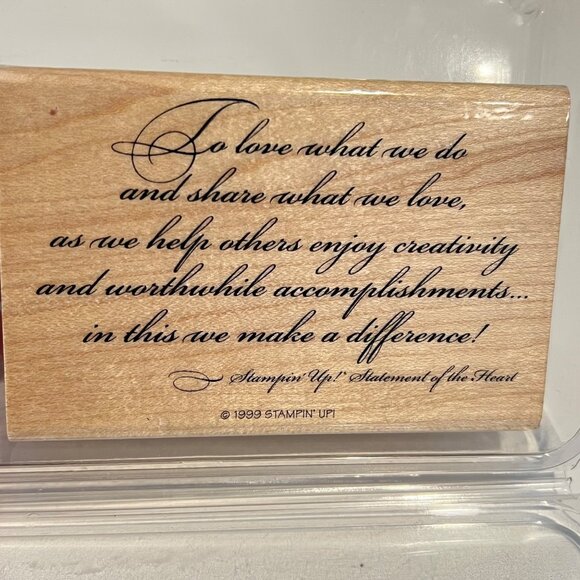 To love what we do
and share what we love,
as we help others enjoy creativity
and worthwhile accomplishments...
in this we make a difference!
Stampin' Up!® Statement of the Heart
© 1999 STAMPIN' UP!